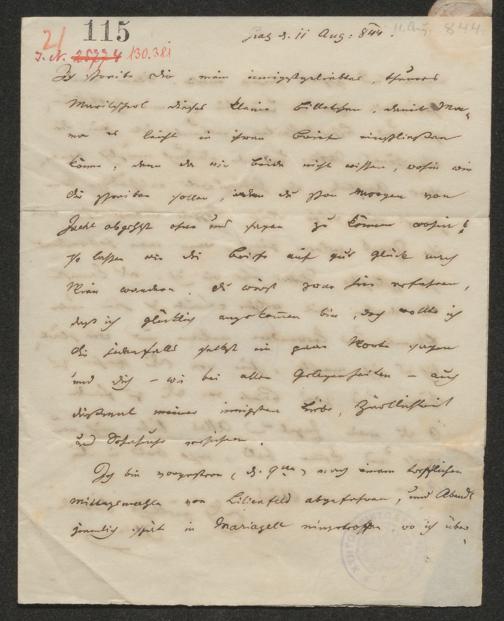 115
21
I. N. 25774 130.381
Graz d. 11 Aug: 844.
11. Aug. 844
Ich schreibe dir, mein innigstgeliebtes, theures
dieses kleine Billettchen, damit Ma-
ma es leicht in ihren Brief einschließen
könne, denn da wir beide nicht wissen, wohin wir
dir schreiben sollen, indem du schon morgen von
Ischl abgehst ohne uns sagen zu können wohin?
so lassen wir die Briefe auf gut Glück nach
Wien wandern. du wirst zwar hier erfahren,
daß ich glücklich angekommen bin, doch wollte ich
dir jedenfalls selbst ein paar Worte sagen
und dich – wie bei allen Gelegenheiten – auch
diesmal meiner innigsten Liebe, Zärtlichkeit
und Sehnsucht versichern.
Ich bin vorgestern (d. 9ten) nach einem trefflichen
Mittagsmahle von Lilienfeld abgefahren, und Abends
ziemlich spät in Mariazell eingetroffen, wo ich über-